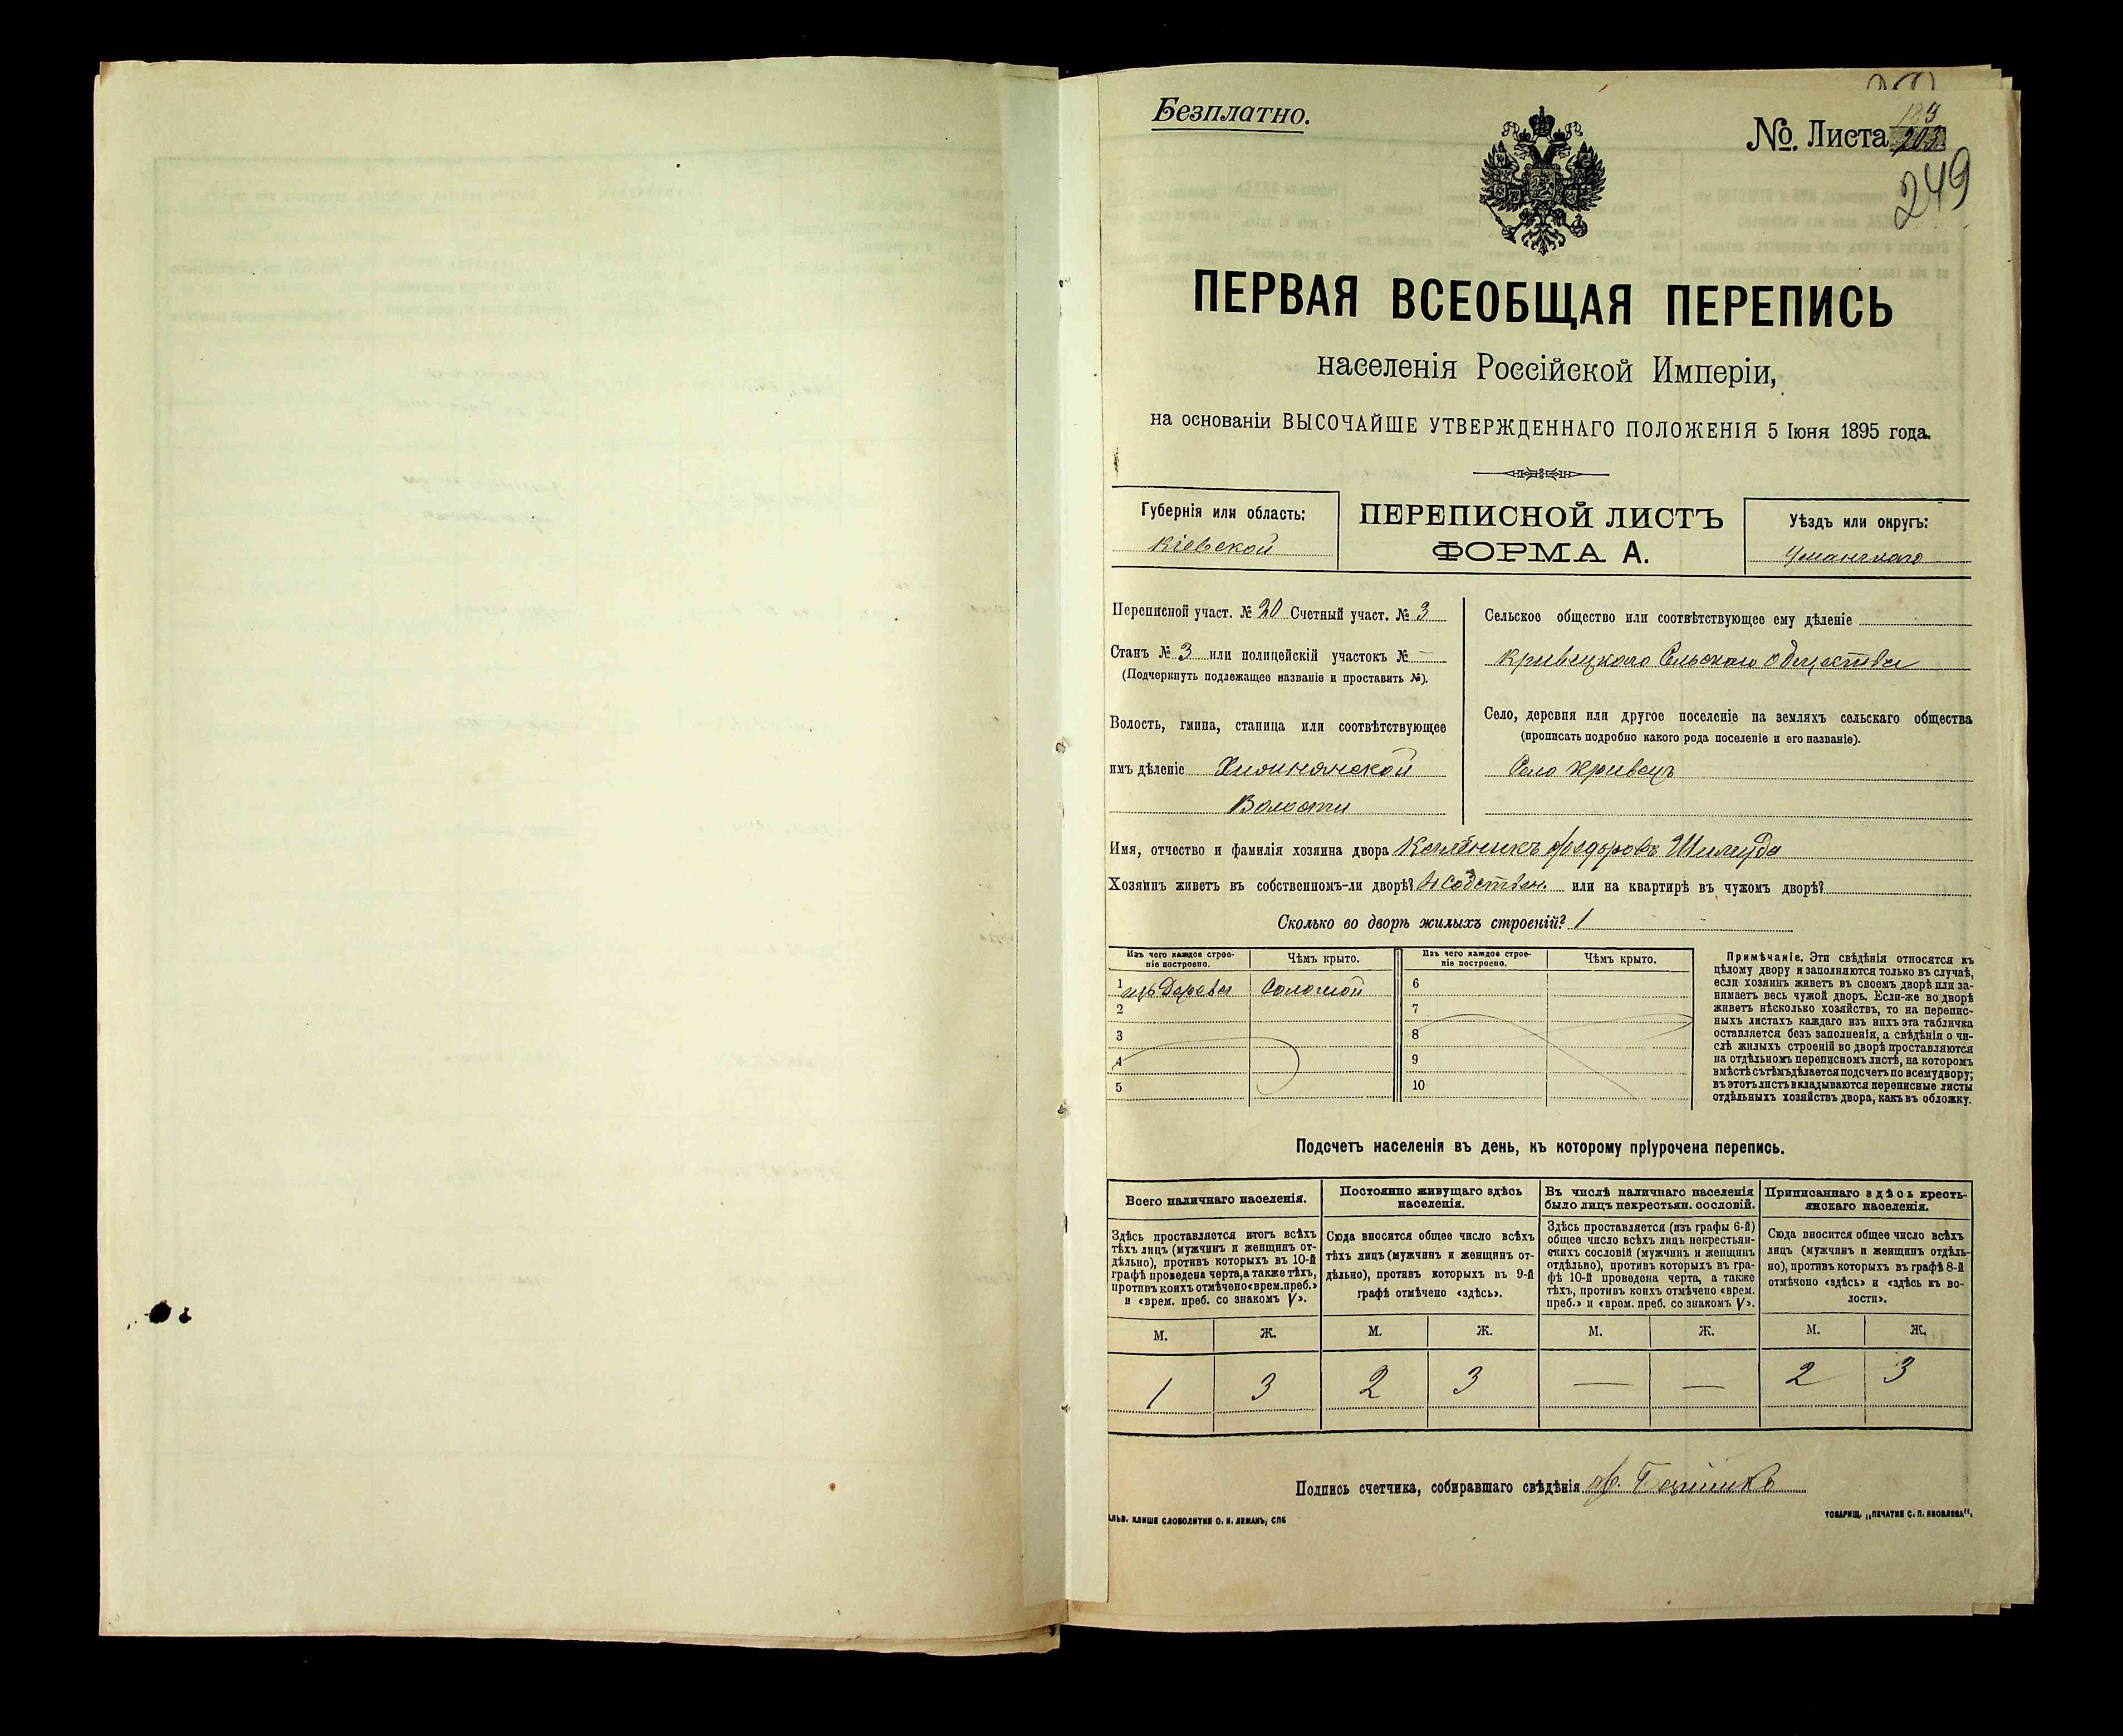 Безплатно.
No. Листа
249
ПЕРВАЯ ВСЕОБЩАЯ ПЕРЕПИСЬ
населенія Россійской Имперіи,
на основаніи ВЫСОЧАЙШЕ УТВЕРЖДЕННАГО ПОЛОЖЕНІЯ 5 Іюня 1895 года.
Губернія или область:
Кіевской
ПЕРЕПИСНОЙ ЛИСТЪ
ФОРМА А.
Уѣздъ или округъ:
Уманскаго
Переписной участ. № 20 Счетный участ. № 3
Станъ № 3 или полицейскій участокъ № —
(Подчеркнуть подлежащее названіе и проставить №).
Волость, гмина, станица или соотвѣтствующее
имъ дѣленіе
Волости
Сельское общество или соотвѣтствующее ему дѣленіе
Кривецкаго Сельскаго Общества
Село, деревня или другое поселеніе на земляхъ сельскаго общества
(прописать подробно какого рода поселеніе и его названіе).
Село Кривецъ
Имя, отчество и фамилія хозяина двора Федоровъ
Хозяинъ живетъ въ собственномъ-ли дворѣ? или на квартирѣ въ чужомъ дворѣ?
Сколько во дворѣ жилыхъ строеній? 1
Изъ чего каждое строе-
ніе построено.
Чѣмъ крыто.
Изъ чего каждое строе-
ніе построено.
Чѣмъ крыто.
1 изъ Дерева Соломой 6
2 7
3 8
4 9
5 10
Примѣчаніе. Эти свѣдѣнія относятся къ
цѣлому двору и заполняются только въ случаѣ,
если хозяинъ живетъ въ своемъ дворѣ или за-
нимаетъ весь чужой дворъ. Если-же во дворѣ
живетъ нѣсколько хозяйствъ, то на перепис-
ныхъ листахъ каждаго изъ нихъ эта табличка
оставляется безъ заполненія, а свѣдѣнія о чи-
слѣ жилыхъ строеній во дворѣ проставляются
на отдѣльномъ переписномъ листѣ, на которомъ
вмѣстѣ съ тѣмъ дѣлается подсчетъ по всему двору;
въ этотъ листъ вкладываются переписные листы
отдѣльныхъ хозяйствъ двора, какъ въ обложку.
Подсчетъ населенія въ день, къ которому пріурочена перепись.
Всего наличнаго населенія.
Здѣсь проставляется итогъ всѣхъ
тѣхъ лицъ (мужчинъ и женщинъ от-
дѣльно), противъ которыхъ въ 10-й
графѣ проведена черта, а также тѣхъ,
противъ коихъ отмѣчено «врем. преб.»
и «врем. преб. со знакомъ V».
Постоянно живущаго здѣсь
населенія.
Сюда вносится общее число всѣхъ
тѣхъ лицъ (мужчинъ и женщинъ от-
дѣльно), противъ которыхъ въ 9-й
графѣ отмѣчено «здѣсь».
Въ числѣ наличнаго населенія
было лицъ некрестьян. сословій.
Здѣсь проставляется (изъ графы 6-й)
общее число всѣхъ лицъ некрестьян-
скихъ сословій (мужчинъ и женщинъ
отдѣльно), противъ которыхъ въ гра-
фѣ 10-й проведена черта, а также
тѣхъ, противъ коихъ отмѣчено «врем.
преб.» и «врем. преб. со знакомъ V».
Приписаннаго здѣсь кресть-
янскаго населенія.
Сюда вносится общее число всѣхъ
лицъ (мужчинъ и женщинъ отдѣль-
но), противъ которыхъ въ графѣ 8-й
отмѣчено «здѣсь» и «здѣсь къ во-
лости».
М. Ж. М. Ж. М. Ж. М. Ж.
1 3 2 3 — — 2 3
Подпись счетчика, собиравшаго свѣдѣнія
ТОВАРИЩ. „ПЕЧАТНЯ С. П. ЯКОВЛЕВА“.